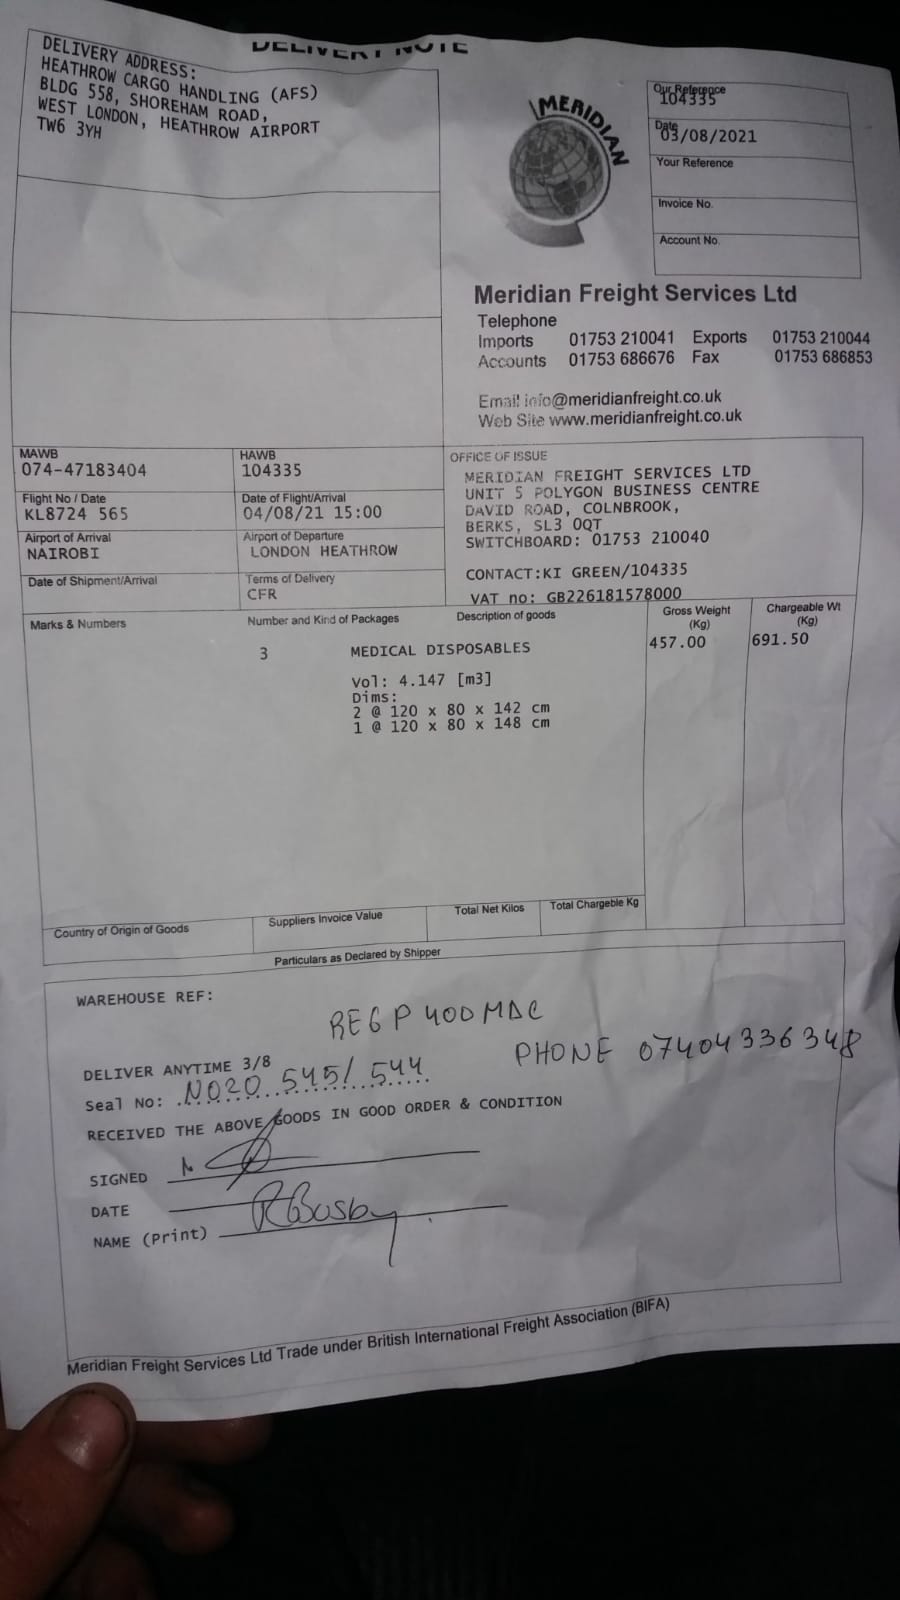 DELIVERY NOTE
DELIVERY ADDRESS:
HEATHROW CARGO HANDLING (AFS)
BLDG 558, SHOREHAM ROAD,
WEST LONDON, HEATHROW AIRPORT
TW6 3YH
MERIDIAN
Our Reference
104335
Date
03/08/2021
Your Reference
Invoice No.
Account No.
Meridian Freight Services Ltd
Telephone
Imports 01753 210041 Exports 01753 210044
Accounts 01753 686676 Fax 01753 686853
Email info@meridianfreight.co.uk
Web Site www.meridianfreight.co.uk
MAWB
074-47183404
HAWB
104335
Flight No / Date
KL8724 565
Date of Flight/Arrival
04/08/21 15:00
Airport of Arrival
NAIROBI
Airport of Departure
LONDON HEATHROW
Date of Shipment/Arrival
Terms of Delivery
CFR
OFFICE OF ISSUE
MERIDIAN FREIGHT SERVICES LTD
UNIT 5 POLYGON BUSINESS CENTRE
DAVID ROAD, COLNBROOK,
BERKS, SL3 0QT
SWITCHBOARD: 01753 210040
CONTACT:KI GREEN/104335
VAT no: GB226181578000
Marks & Numbers Number and Kind of Packages Description of goods Gross Weight (Kg) Chargeable Wt (Kg)
3 MEDICAL DISPOSABLES 457.00 691.50
Vol: 4.147 [m3]
Dims:
2 @ 120 x 80 x 142 cm
1 @ 120 x 80 x 148 cm
Country of Origin of Goods Suppliers Invoice Value Total Net Kilos Total Chargeble Kg
Particulars as Declared by Shipper
WAREHOUSE REF:
REG P400MDC
PHONE 07404336348
DELIVER ANYTIME 3/8
Seal No: N020 545/544
RECEIVED THE ABOVE GOODS IN GOOD ORDER & CONDITION
SIGNED
DATE
NAME (Print) RBusby
Meridian Freight Services Ltd Trade under British International Freight Association (BIFA)